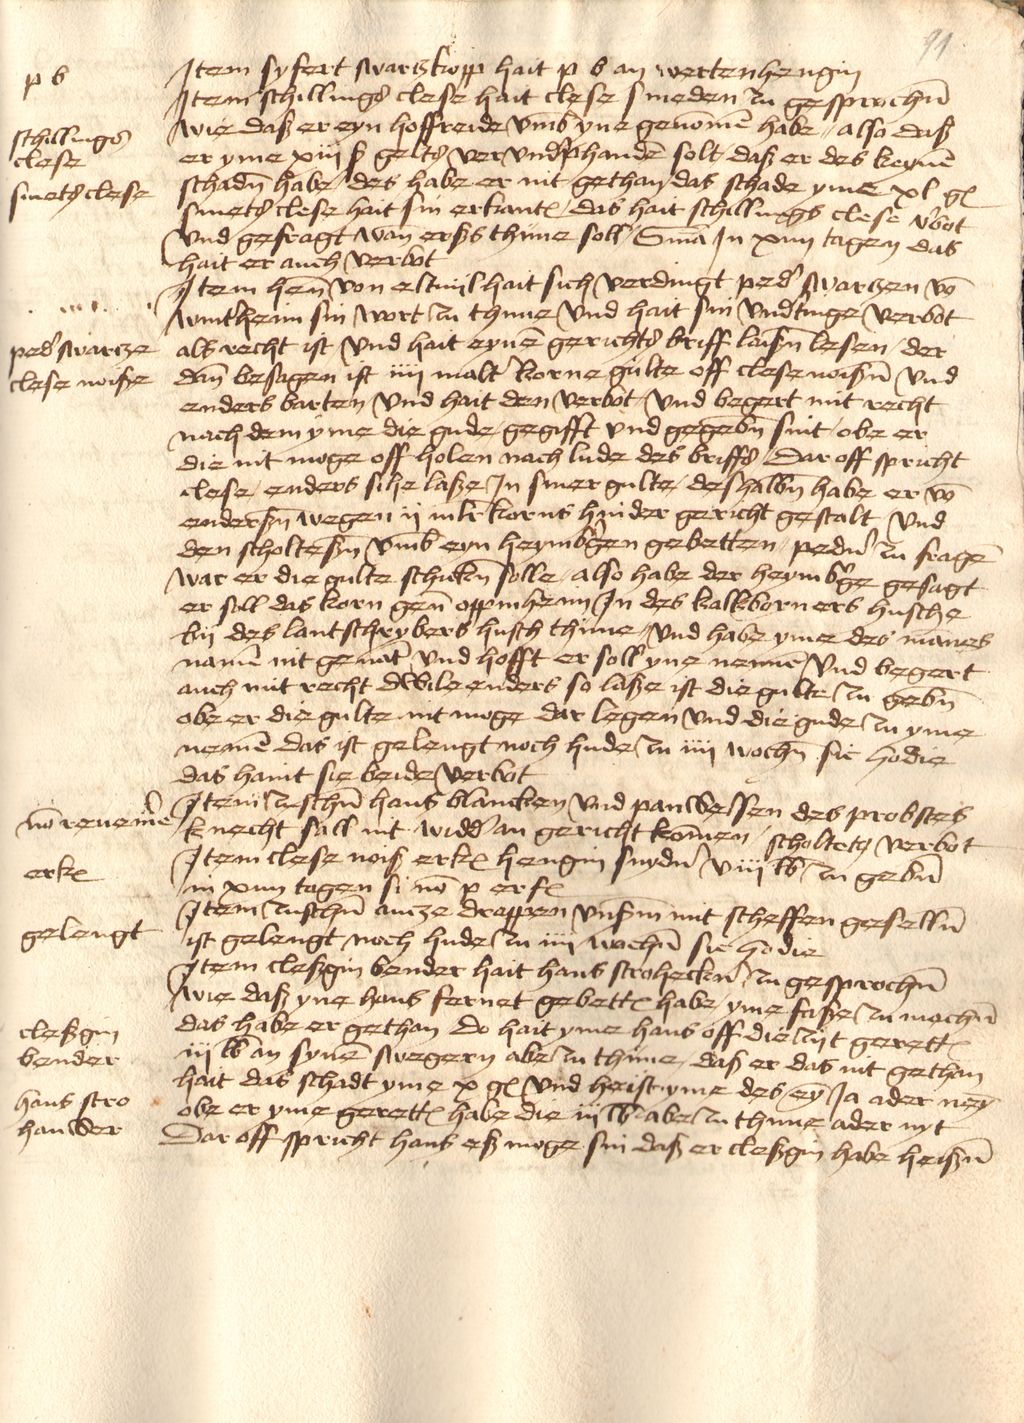 91
p b
Item syfert swartzkopp hait p b an wertenhengin
Item schillings clese hait clese smeden zu gesprochn̄
schillings
clese
smets clese
wie daß er eyn hoffreide vmb yne genom̄en habe / also daß
er yme xiij ß gelts ver vndphanden solt / daß er des keynē
schadn̄ habe / des habe er nit gethan das schade yme xl gl
smets clese hait sin erkant / das hait schillings clese v̓bot
vnd gefragt wan erß thune soll / Sma In xiiij tagen das
hait er auch verbot
Item hen̄ von eltuil hait sich verdingt ped̓ swartzen vō
wintheim sin wort zu thune vnd hait sin vnd̓tinge verbot
ped̓ swartze
clese noiße
als recht ist vnd hait eynē gerichts briff laißn̄ lesen / der
dan̄ besagen ist iiij malt̓ korne gulte off clese noißn̄ vnd
enders barten vnd hait den verbot / vnd begert mit recht
nach dem yme die gude gegifft vnd gegebn̄ sint / obe er
die nit moge off holen nach lude des briffs / Dar off spricht
clese / enders sihe laße In siner gulte / deshalbn̄ habe er vō
enderßn̄ wegen ij mlr̄ korns hinder gericht gestalt vnd
den scholteßn̄ vmb eyn heymb̓gen gebetten / pedn̓ zu fragē
war er die gulte schickn̄ solle / also habe der heymb̓ge gesagt
er soll das korn gen̄ oppinheim In des kalkborners husche
bij des lantschrybers husch thune / vnd habe yme des mānes
namē nit genāt vnd hofft er soll yne nennē vnd begert
auch mit recht dwile enders so laße ist die gulte zu gebn̄
obe er die gulte nit moge dar legen vnd die gude zu yme
nemē das ist gelengt noch hude zu iiij wochn̄ sic hodie
das haint sie beide verbot
Item zuschn̄ hans blancken vnd panwelsen des probstes
knecht sall nit widd̓ an gericht kom̄en / scholtets verbot
erk
Item clese noiß erk hengin snydn̓ viij lb zu gebn̄
in xiiij tagen si nō p erf
gelengt
Item zuschn̄ antze drappen vnßm̄ mit scheffen geselln̄
ist gelengt noch hude zu iiij wochn̄ sic hodie
Item cleßgin bender hait hans strohecken zu gesprochn̄
cleßgin
bender
wie daß yne hans fernet gebett habe yme faße zu machn̄
das habe er gethan do hait yme hans off die zijt gerett
iij lb an synē swegern abe zu thune / daß er das nit gethan
hait das schadt yme x gl vnd heist yme des eȳ Ja ader ney
hans stro
hauwer
obe er yme gerett habe die iij lb abe zu thune ader nyt
Dar off spricht hans eß moge sin daß er cleßgin habe heißn̄